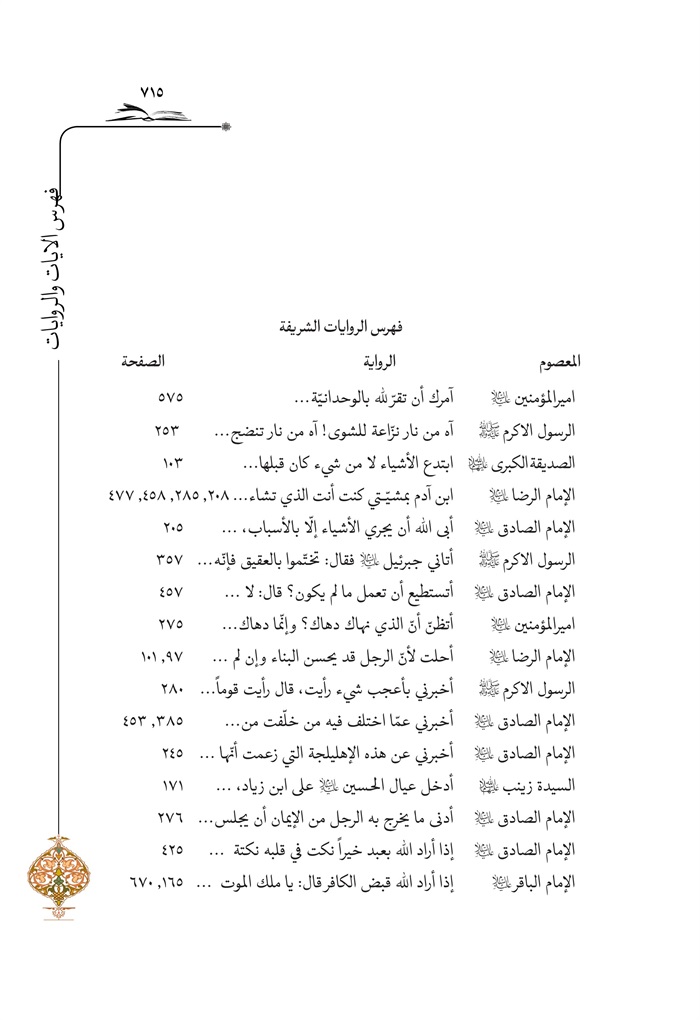 ٧١٥
فهرس الآيات والروايات
فهرس الروايات الشريفة
المعصوم الرواية الصفحة
اميرالمؤمنين ﵇ آمرك أن تقرّ لله بالوحدانيّة... ٥٧٥
الرسول الاكرم ﷺ آه من نار نزّاعة للشوى! آه من نار تنضج... ٢٥٣
الصديقة الكبرى ﵍ ابتدع الأشياء لا من شيء كان قبلها... ١٠٣
الإمام الرضا ﵇ ابن آدم بمشيّتي كنت أنت الذي تشاء... ٢٠٨, ٢٨٥, ٤٥٨, ٤٧٧
الإمام الصادق ﵇ أبى الله أن يجري الأشياء إلّا بالأسباب، ... ٢٠٥
الرسول الاكرم ﷺ أتاني جبرئيل ﵇ فقال: تختّموا بالعقيق فإنّه... ٣٥٧
الإمام الصادق ﵇ أتستطيع أن تعمل ما لم يكون؟ قال: لا ... ٤٥٧
اميرالمؤمنين ﵇ أتظنّ أنّ الذي نهاك دهاك؟ وإنّما دهاك... ٢٧٥
الإمام الرضا ﵇ أحلت لأنّ الرجل قد يحسن البناء وإن لم ... ٩٧, ١٠١
الرسول الاكرم ﷺ أخبرني بأعجب شيء رأيت، قال رأيت قوماً... ٢٨٠
الإمام الصادق ﵇ أخبرني عمّا اختلف فيه من خلّفت من... ٣٨٥, ٤٥٣
الإمام الصادق ﵇ أخبرني عن هذه الإهليلجة التي زعمت أنّها ... ٢٤٥
السيدة زينب ﵍ أدخل عيال الحسين ﵇ على ابن زياد، ... ١٧١
الإمام الصادق ﵇ أدنى ما يخرج به الرجل من الإيمان أن يجلس... ٢٧٦
الإمام الصادق ﵇ إذا أراد الله بعبد خيراً نكت في قلبه نكتة ... ٤٢٥
الإمام الباقر ﵇ إذا أراد الله قبض الكافر قال: يا ملك الموت ... ١٦٥, ٦٧٠